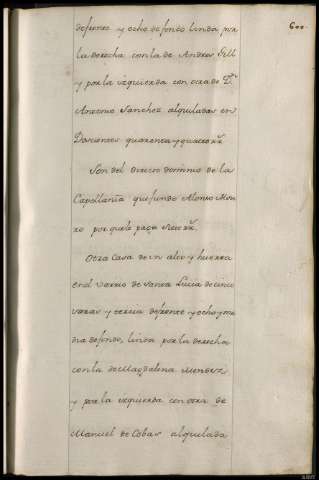 600
defrente y ocho defondo linda por
la derecha con la de Andres Sell
y por la izquierda con otra de Dn.
Antonio Sanchez alquiladas en
Doscientos quarenta y quatro rr.
Son del directo dominio de la
Capellania que fundo Alonso
por que le paga siete rr.
Otra Casa de un alto y huerta
en el varrio de Santa Lucia de cinco
varas y tercia defrente y ocho y me
dia defondo, linda por la derecha
con la de Magdalena Mendez
y por la izquierda con otra de
Manuel de Cobas alquilada